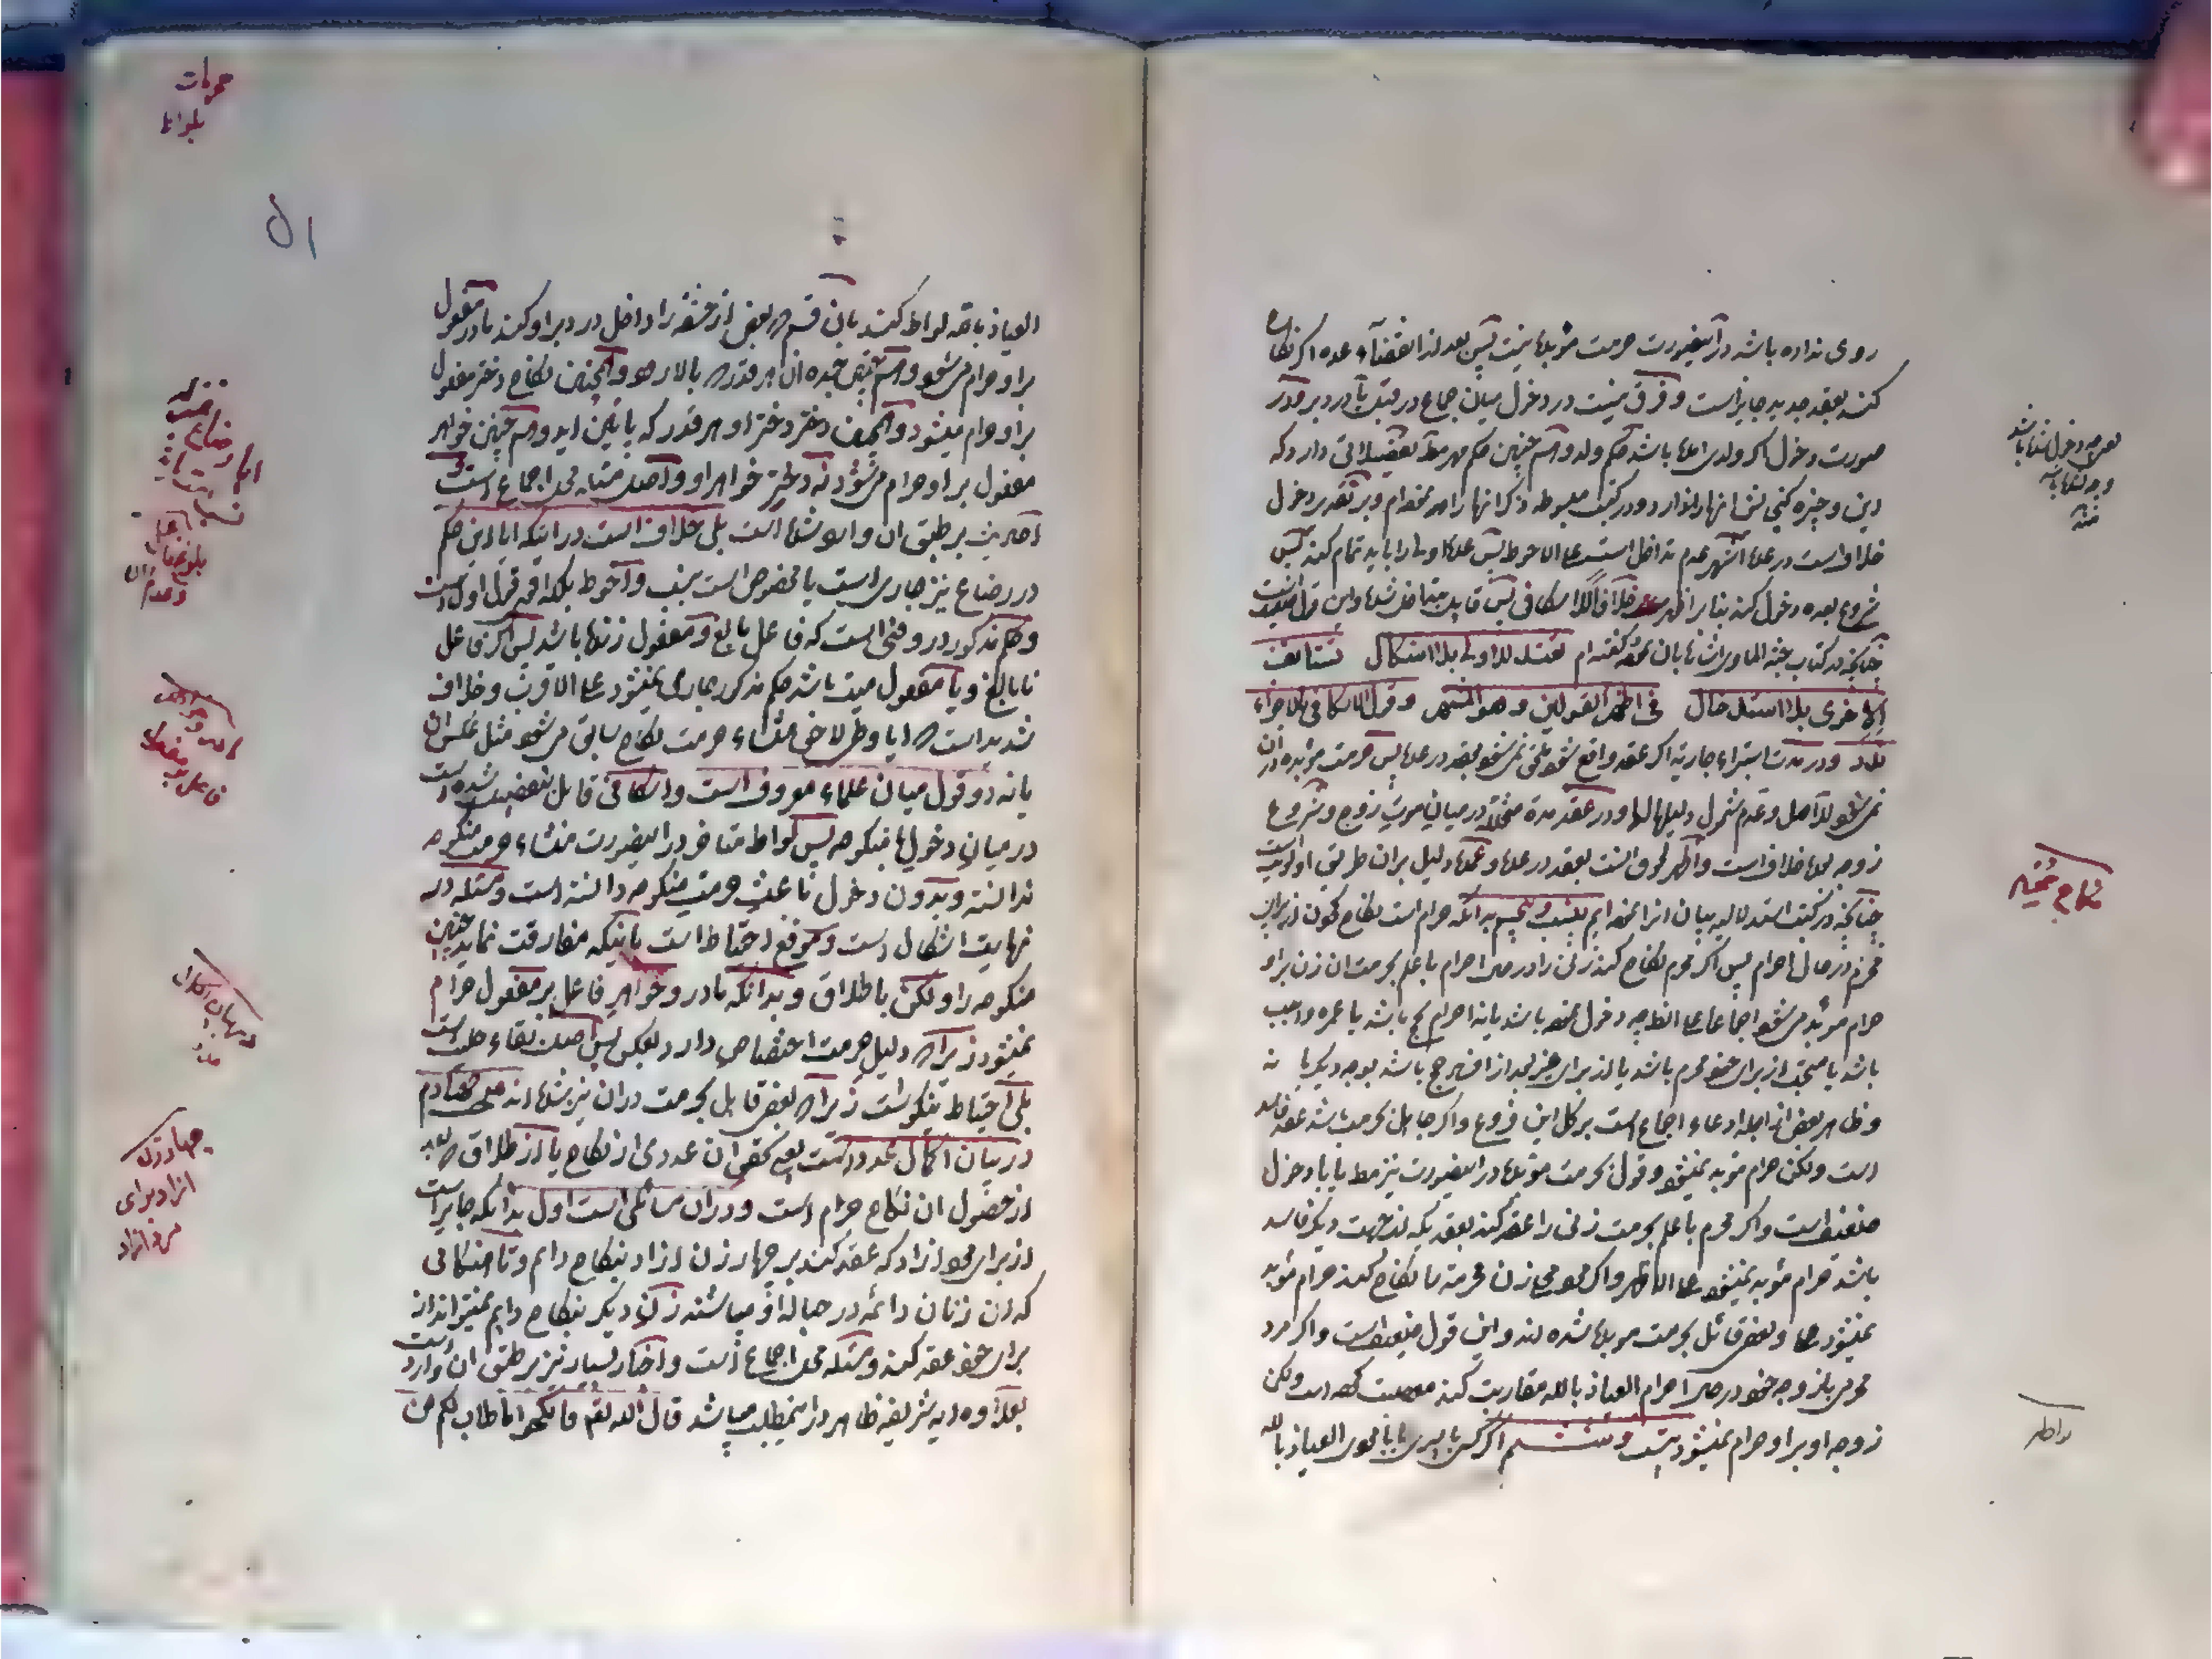 روی نداده باشد در اینصورت حرمت مؤبد نیست پس بعد از انقضاء عده اگر نکاح
کند بعقد جدید جایز است و فرق نیست در دخول میان جماع در قبل یا در دبر و در
صورت دخول اگر ولدی باشد حکم ولد و همچنین حکم مهر تفصیلاتی دارد که
این وجیزه کنجایش انها را ندارد و در کتب مبسوطه ذکر انها را نموده‌ام و بر تقدیر دخول
خلاف است در اشهر عدم تداخل است علی الاحوط پس عده اولی را باید تمام کند پس
شروع بعده دخول کند بنا بر اظهر خلافاً للاسکافی پس قایل بتداخل شده و این قول ضعیف است
چنانچه در کتاب بان نحو گفته‌ام تعتد للاولی بلا اشکال تستأنف
الاخری بلا استدخال فی اظهر القولین و هو المشتهر و قول الاسکافی بالاجزاء
و در مدت استبراء جاریه اگر عقد واقع شود ملحق نمی‌شود بعقد در عده پس حرمت مؤبده در ان
نمی‌شود للاصل و عدم شمول دلیلها لها و در عقد مدة متخلله در میان موت زوج و شروع
زوجه بعده خلاف است و اظهر لحوق انست بعقد در عده و عمده دلیل بران طریق اولویت است
چنانچه در کتب استدلالیه بیان انرا نموده‌ایم و پنجم بدانکه حرام است نکاح کردن از برای
محرم در حال احرام پس اگر محرم نکاح کند زنی را در حال احرام با علم بحرمت ان زن براو
حرام مؤبد می‌شود اجماعا علی الظاهر چه دخول نموده باشد یا نه احرام حج باشد یا عمره واجب
باشد یا مستحب از برای خود محرم باشد یا از برای غیر بعد از افساد حج باشد بوجه دیگر یا نه
و ظاهر بعض از اجله ادعاء اجماع است بر کل این فروع و اگر جاهل بحرمت باشد عقد فاسد
است ولکن حرام مؤبد نمیشود و قول بحرمت مؤبد در اینصورت نیز مط یا با دخول
ضعیف است و اگر محرم با علم بحرمت زنی را عقد کند بعقدیکه از جهت دیگر فاسد
باشد حرام مؤبد نمیشود علی الاظهر و اگر محل زن محرمه را نکاح کند حرام مؤبد
نمیشود و بعضی قائل بحرمت مؤبد شده‌اند و این قول ضعیف است و اگر مرد
محرم با زوجه خود در حال احرام العیاذ بالله مقاربت کند معصیت کرده است ولکن
زوجه او بر او حرام نمیشود و ششم اگر کسی با پسری یا با مردی العیاذ بالله
نکاح محرم
لواط
محرمات
بلواط
۵۱
العیاذ بالله لواط کند بان قسم که بعض از حشفه را داخل در دبر او کند مادر مفعول
بر او حرام می‌شود و هم‌چنین جده ان هر قدر که بالا رود و همچنین نکاح دختر مفعول
بر او حرام میشود و همچنین دختر دختر او هر قدر که پائین اید و هم‌چنین خواهر
مفعول بر او حرام می‌شود نه دختر خواهر او و اصل مسئله محل اجماع است
احادیث بر طبق ان وارد شده است بلی خلاف است در اینکه ایا این حکم
در رضاع نیز جاری است یا مخصوص است بنسب و احوط بلکه اقوی قول اول است
و حکم مذکور در وقتی است که فاعل بالغ و مفعول زنده باشد پس اگر فاعل
نابالغ و یا مفعول میت باشد حکم مذکور جاری نمیشود علی الاقرب و خلاف
شدید است که ایا وطی لاحق منشاء حرمت نکاح سابق می‌شود مثل عکس ان
یا نه دو قول میان علماء معروف است و اسکافی قائل بتفصیل شده است
در میان دخول با منکوحه پس لواط متأخر در اینصورت منشاء حرمت منکوحه
ندانسته و بدون دخول باعث حرمت منکوحه دانسته است و مسئله در
نهایت اشکال است و موقع احتیاط است باینکه مفارقت نماید چنین
منکوحه را ولکن با طلاق و بدانکه مادر و خواهر فاعل بر مفعول حرام
نمیشود زیرا که دلیل حرمت اختصاص دارد بعکس پس اصل بقاء حلیت است
بلی احتیاط نیکو است زیرا که بعضی قایل بحرمت در ان نیز شده‌اند
در بیان اکمال عدد است یعنی تحقق ان عددی از نکاح یا از طلاق که بعد
از حصول ان نکاح حرام است و در ان مسائلی است اول بدانکه جایز است
از برای مرد ازاد که عقد کند بر چهار زن ازاد بنکاح دایم و تا هنگامی
که ان زنان دائمه در حباله او میباشند زن دیگر بنکاح دایم نمیتواند از
برای خود عقد کند و مسئله محل اجماع است و اخبار بسیار نیز بر طبق ان وارد است
بعلاوه ایه شریفه ظاهر در اینمطلب میباشد قال الله تعم فانکحوا ما طاب لکم من
در بیان اکمال
عدد
چهار زن
ازاد برای
مرد ازاد